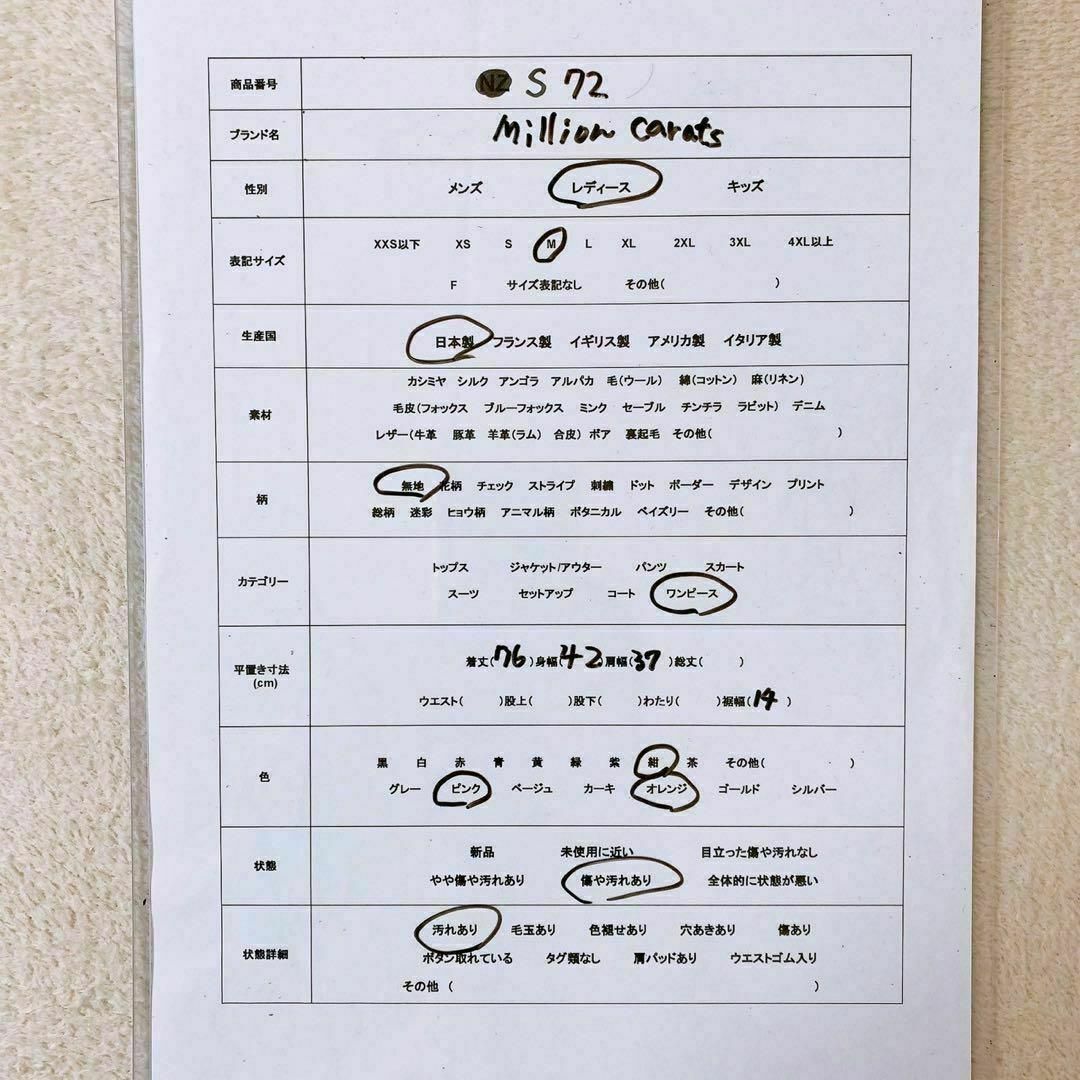 商品番号 NZ S 72
ブランド名 Million Carats
性別 メンズ レディース キッズ
表記サイズ
XXS以下 XS S M L XL 2XL 3XL 4XL以上
F サイズ表記なし その他( )
生産国 日本製 フランス製 イギリス製 アメリカ製 イタリア製
素材
カシミヤ シルク アンゴラ アルパカ 毛(ウール) 綿(コットン) 麻(リネン)
毛皮(フォックス ブルーフォックス ミンク セーブル チンチラ ラビット) デニム
レザー(牛革 豚革 羊革(ラム) 合皮) ボア 裏起毛 その他( )
柄
無地 花柄 チェック ストライプ 刺繍 ドット ボーダー デザイン プリント
総柄 迷彩 ヒョウ柄 アニマル柄 ボタニカル ペイズリー その他( )
カテゴリー
トップス ジャケット/アウター パンツ スカート
スーツ セットアップ コート ワンピース
平置き寸法
(cm)
着丈(76)身幅(42)肩幅(37)総丈( )
ウエスト( )股上( )股下( )わたり( )裾幅(14)
色
黒 白 赤 青 黄 緑 紫 紺 茶 その他( )
グレー ピンク ベージュ カーキ オレンジ ゴールド シルバー
状態
新品 未使用に近い 目立った傷や汚れなし
やや傷や汚れあり 傷や汚れあり 全体的に状態が悪い
状態詳細
汚れあり 毛玉あり 色褪せあり 穴あきあり 傷あり
ボタン取れている タグ類なし 肩パッドあり ウエストゴム入り
その他 ( )